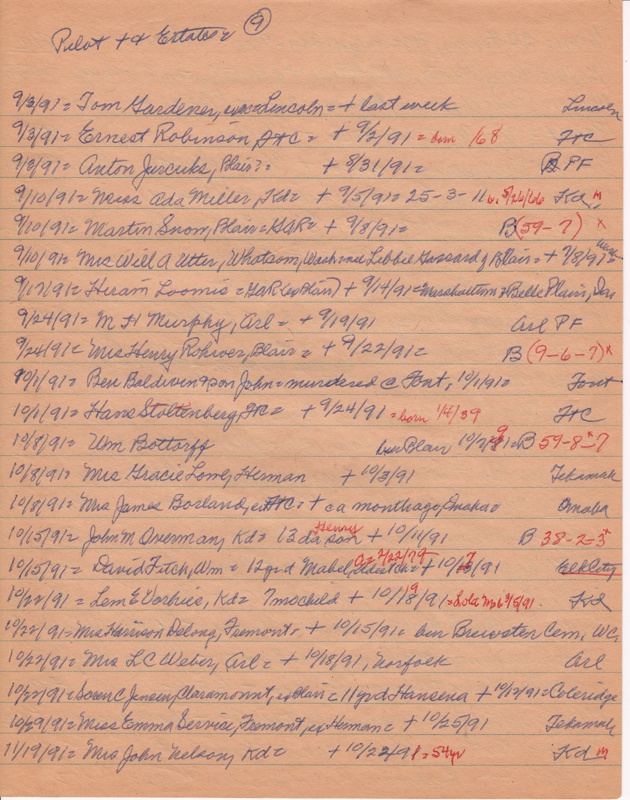 Pilot + & Estates = 9
9/3/91 = Tom Gardener, ex = Lincoln = + last week Lincoln
9/3/91 = Ernest Robinson, FtC = + 9/2/91 = born /68 FtC
9/3/91 = Anton Jurcuks, Blair? = + 8/31/91 = B PF
9/10/91 = Miss Ada Miller, Kd = + 9/5/91 = 25-3-11 b. 5/26/66 Kd m
9/10/91 = Martin Snow, Blair = GAR = + 9/8/91 = B (59-7) x
9/10/91 = Mrs Will A Utter, Whatsom, Wash = nee Libbie Gossard of Blair = + 7/8/91 Wash
9/17/91 = Hiram Loomis = GAR (ex Blair) + 9/14/91 = Belle Plain,
9/24/91 = M H Murphy, Arl = + 9/19/91 Arl PF
9/24/91 = Mrs Henry Rohwer, Blair = + 9/22/91 = B (9-6-7) x
10/1/91 = Ben Baldwin & son John = murdered @ Font, 10/1/91 = Font
10/1/91 = Hans Stoltenberg, FtC = + 9/24/91 = born 1/4/39 FtC
10/8/91 = Wm Bottorff bur Blair 10/2/89 1 = B 59-8-7 x
10/8/91 = Mrs Gracie Lowe, Herman + 10/3/91 Tekamah
10/8/91 = Mrs James Borland, ex FtC = + ca month ago, Omaha Omaha
10/15/91 = John M. Overman, Kd = 12 da son Henry + 10/11/91 B 38-2-3 x
10/15/91 = David Fitch, Wm = 12 yr d Mabel, eldest ch = + 10/17/91 a = 2/22/79 Elk City
10/22/91 = Lem E Vorhies, Kd = 7 mo child + 10/19/91 = Lola M b 3/5/91. Kd
10/22/91 = Mrs Harrison Delong, Fremont, + 10/15/91 = bur Brewster Cem, WC
10/22/91 = Mrs L C Weber, Arl = + 10/18/91, Norfolk Arl
10/27/91 = Soren C Jensen, Claramount, ex Blair = 11 yr d Hansena + 10/12/91 = Coleridge
10/29/91 = Miss Emma Service, Fremont, ex Herman = + 10/25/91 Tekamah
11/19/91 = Mrs John Nelson, Kd = + 10/22/91 = 54 yr Kd m